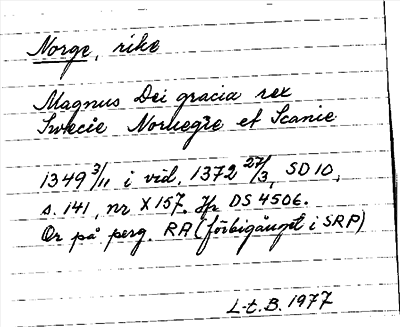 Norge, rike
Magnus Dei gracia rex
Swecie Noruegie et Scanie
1349 3/11 i vid. 1372 27/3, SD 10,
s. 141, nr X 157. Jfr DS 4506.
Or på perg. RA (förbigånget i SRP)
L-t. B. 1977